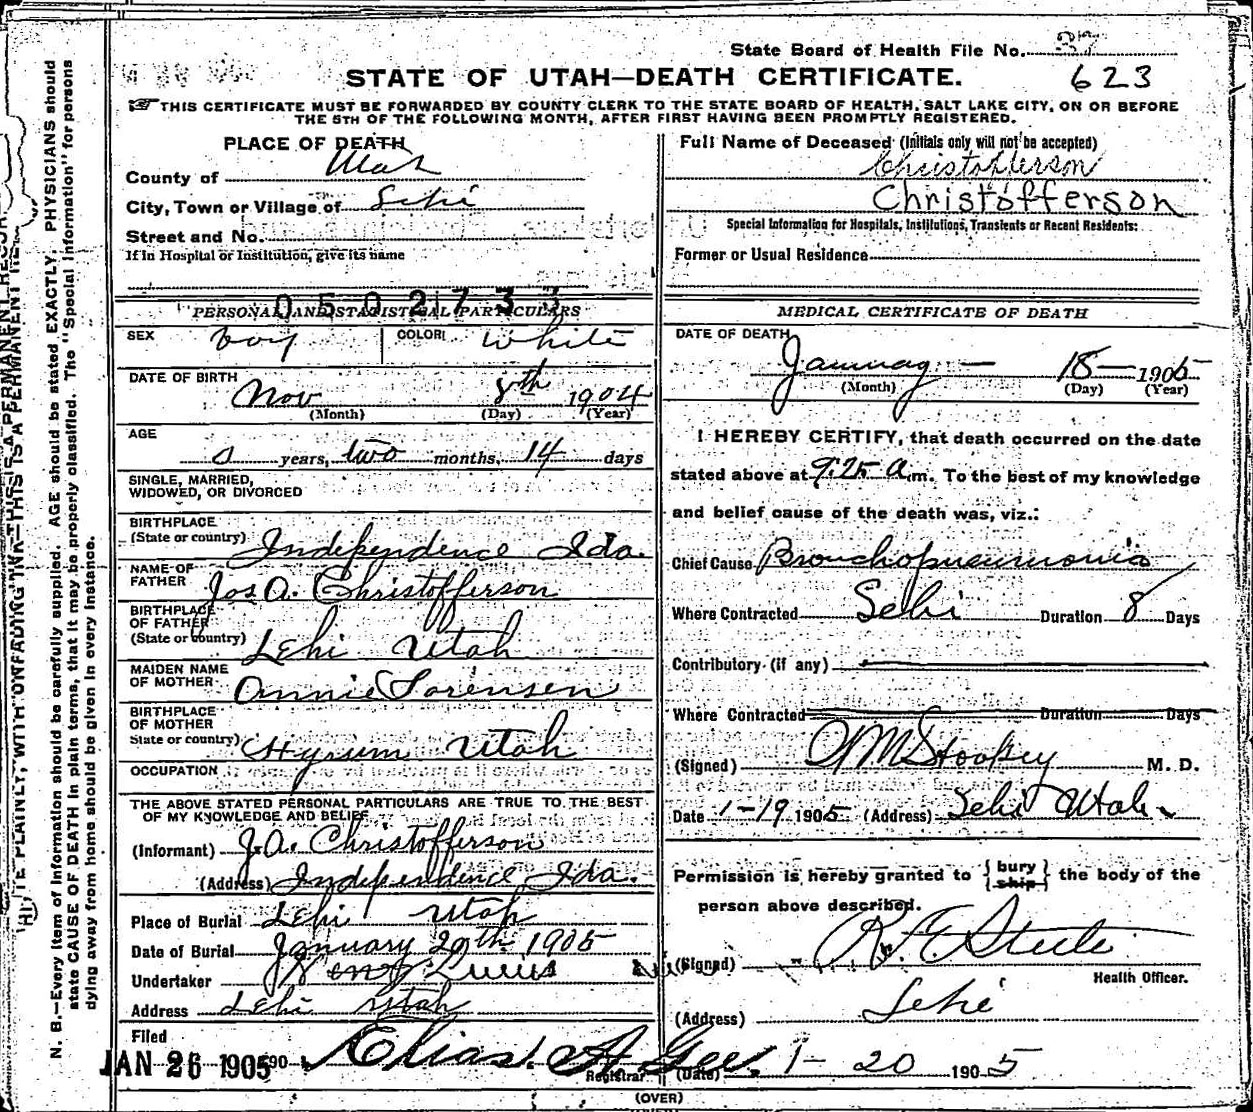 State Board of Health File No. 37
STATE OF UTAH—DEATH CERTIFICATE. 623
THIS CERTIFICATE MUST BE FORWARDED BY COUNTY CLERK TO THE STATE BOARD OF HEALTH, SALT LAKE CITY, ON OR BEFORE
THE 5TH OF THE FOLLOWING MONTH, AFTER FIRST HAVING BEEN PROMPTLY REGISTERED.
N. B.—Every item of information should be carefully supplied. AGE should be stated EXACTLY. PHYSICIANS should
state CAUSE OF DEATH in plain terms, that it may be properly classified. The "Special Information" for persons
dying away from home should be given in every instance.
PLACE OF DEATH
County of Utah
City, Town or Village of Lehi
Street and No.
If in Hospital or Institution, give its name
0502733
PERSONAL AND STATISTICAL PARTICULARS
SEX boy COLOR White
DATE OF BIRTH Nov 8th 1904
(Month) (Day) (Year)
AGE
0 years, two months, 14 days
SINGLE, MARRIED,
WIDOWED, OR DIVORCED
BIRTHPLACE
(State or country) Independence Ida.
NAME OF
FATHER Jos A. Christofferson
BIRTHPLACE
OF FATHER
(State or country) Lehi Utah
MAIDEN NAME
OF MOTHER Annie Sorensen
BIRTHPLACE
OF MOTHER
State or country) Hyrum Utah
OCCUPATION
THE ABOVE STATED PERSONAL PARTICULARS ARE TRUE TO THE BEST
OF MY KNOWLEDGE AND BELIEF
(Informant) J.A. Christofferson
(Address) Independence Ida.
Place of Burial Lehi Utah
Date of Burial January 20th 1905
Undertaker
Address Lehi Utah
Filed
JAN 26 1905 90 Elias A. Gee.
Registrar
Full Name of Deceased (Initials only will not be accepted)
Christofferson
Christofferson
Special Information for Hospitals, Institutions, Transients or Recent Residents:
Former or Usual Residence
MEDICAL CERTIFICATE OF DEATH
DATE OF DEATH
January — 18— 1905
(Month) (Day) (Year)
I HEREBY CERTIFY, that death occurred on the date
stated above at 9:25 a.m. To the best of my knowledge
and belief cause of the death was, viz.:
Chief Cause Bronchopneumonia
Where Contracted Lehi Duration 8 Days
Contributory (if any)
Where Contracted Duration Days
(Signed) Stookey M. D.
Date 1-19 1905 (Address) Lehi Utah
Permission is hereby granted to { bury ship } the body of the
person above described.
(Signed) R. E. Steele
Health Officer.
(Address) Lehi
(Date) 1- 20 1905
(OVER)